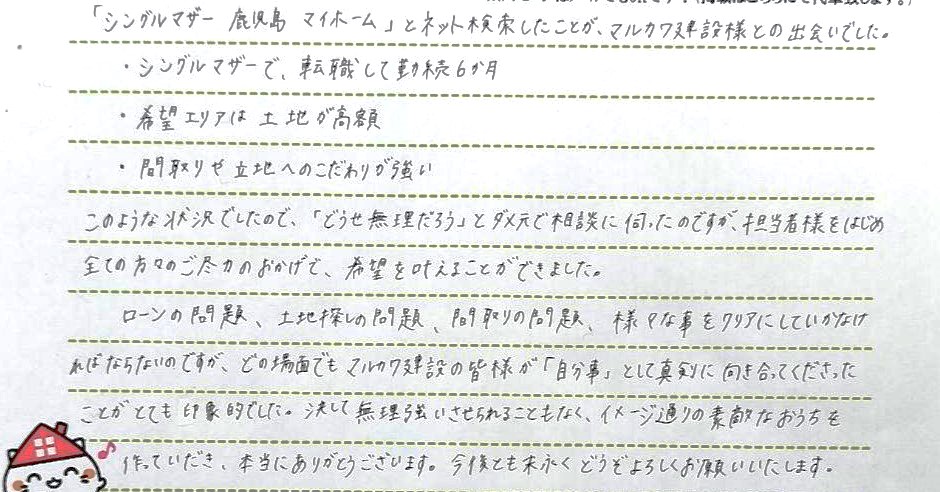 「シングルマザー 鹿児島 マイホーム」とネット検索したことが、マルカワ建設様との出会いでした。
・シングルマザーで、転職して勤続6か月
・希望エリアは土地が高額
・間取りや立地へのこだわりが強い
このような状況でしたので、「どうせ無理だろう」とダメ元で相談に伺ったのですが、担当者様をはじめ
全ての方々のご尽力のおかげで、希望を叶えることができました。
ローンの問題、土地探しの問題、間取りの問題、様々な事をクリアにしていかなけ
ればならないのですが、どの場面でもマルカワ建設の皆様が「自分事」として真剣に向き合ってくださった
ことがとても印象的でした。決して無理強いさせられることもなく、イメージ通りの素敵なおうちを
作っていだき、本当にありがとうございます。今後とも末永くどうぞよろしくお願いいたします。